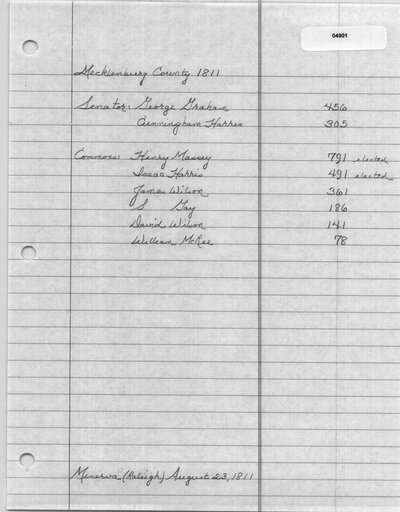 04901
Mecklenburg County 1811
Senator: George Graham 456
Cunningham Harris 305
Commons: Henry Massey 791 elected
Isaac Harris 491 elected
James Wilson 361
S Gay 186
David Wilson 141
William McRee 78
Minerva (Raleigh) August 23, 1811